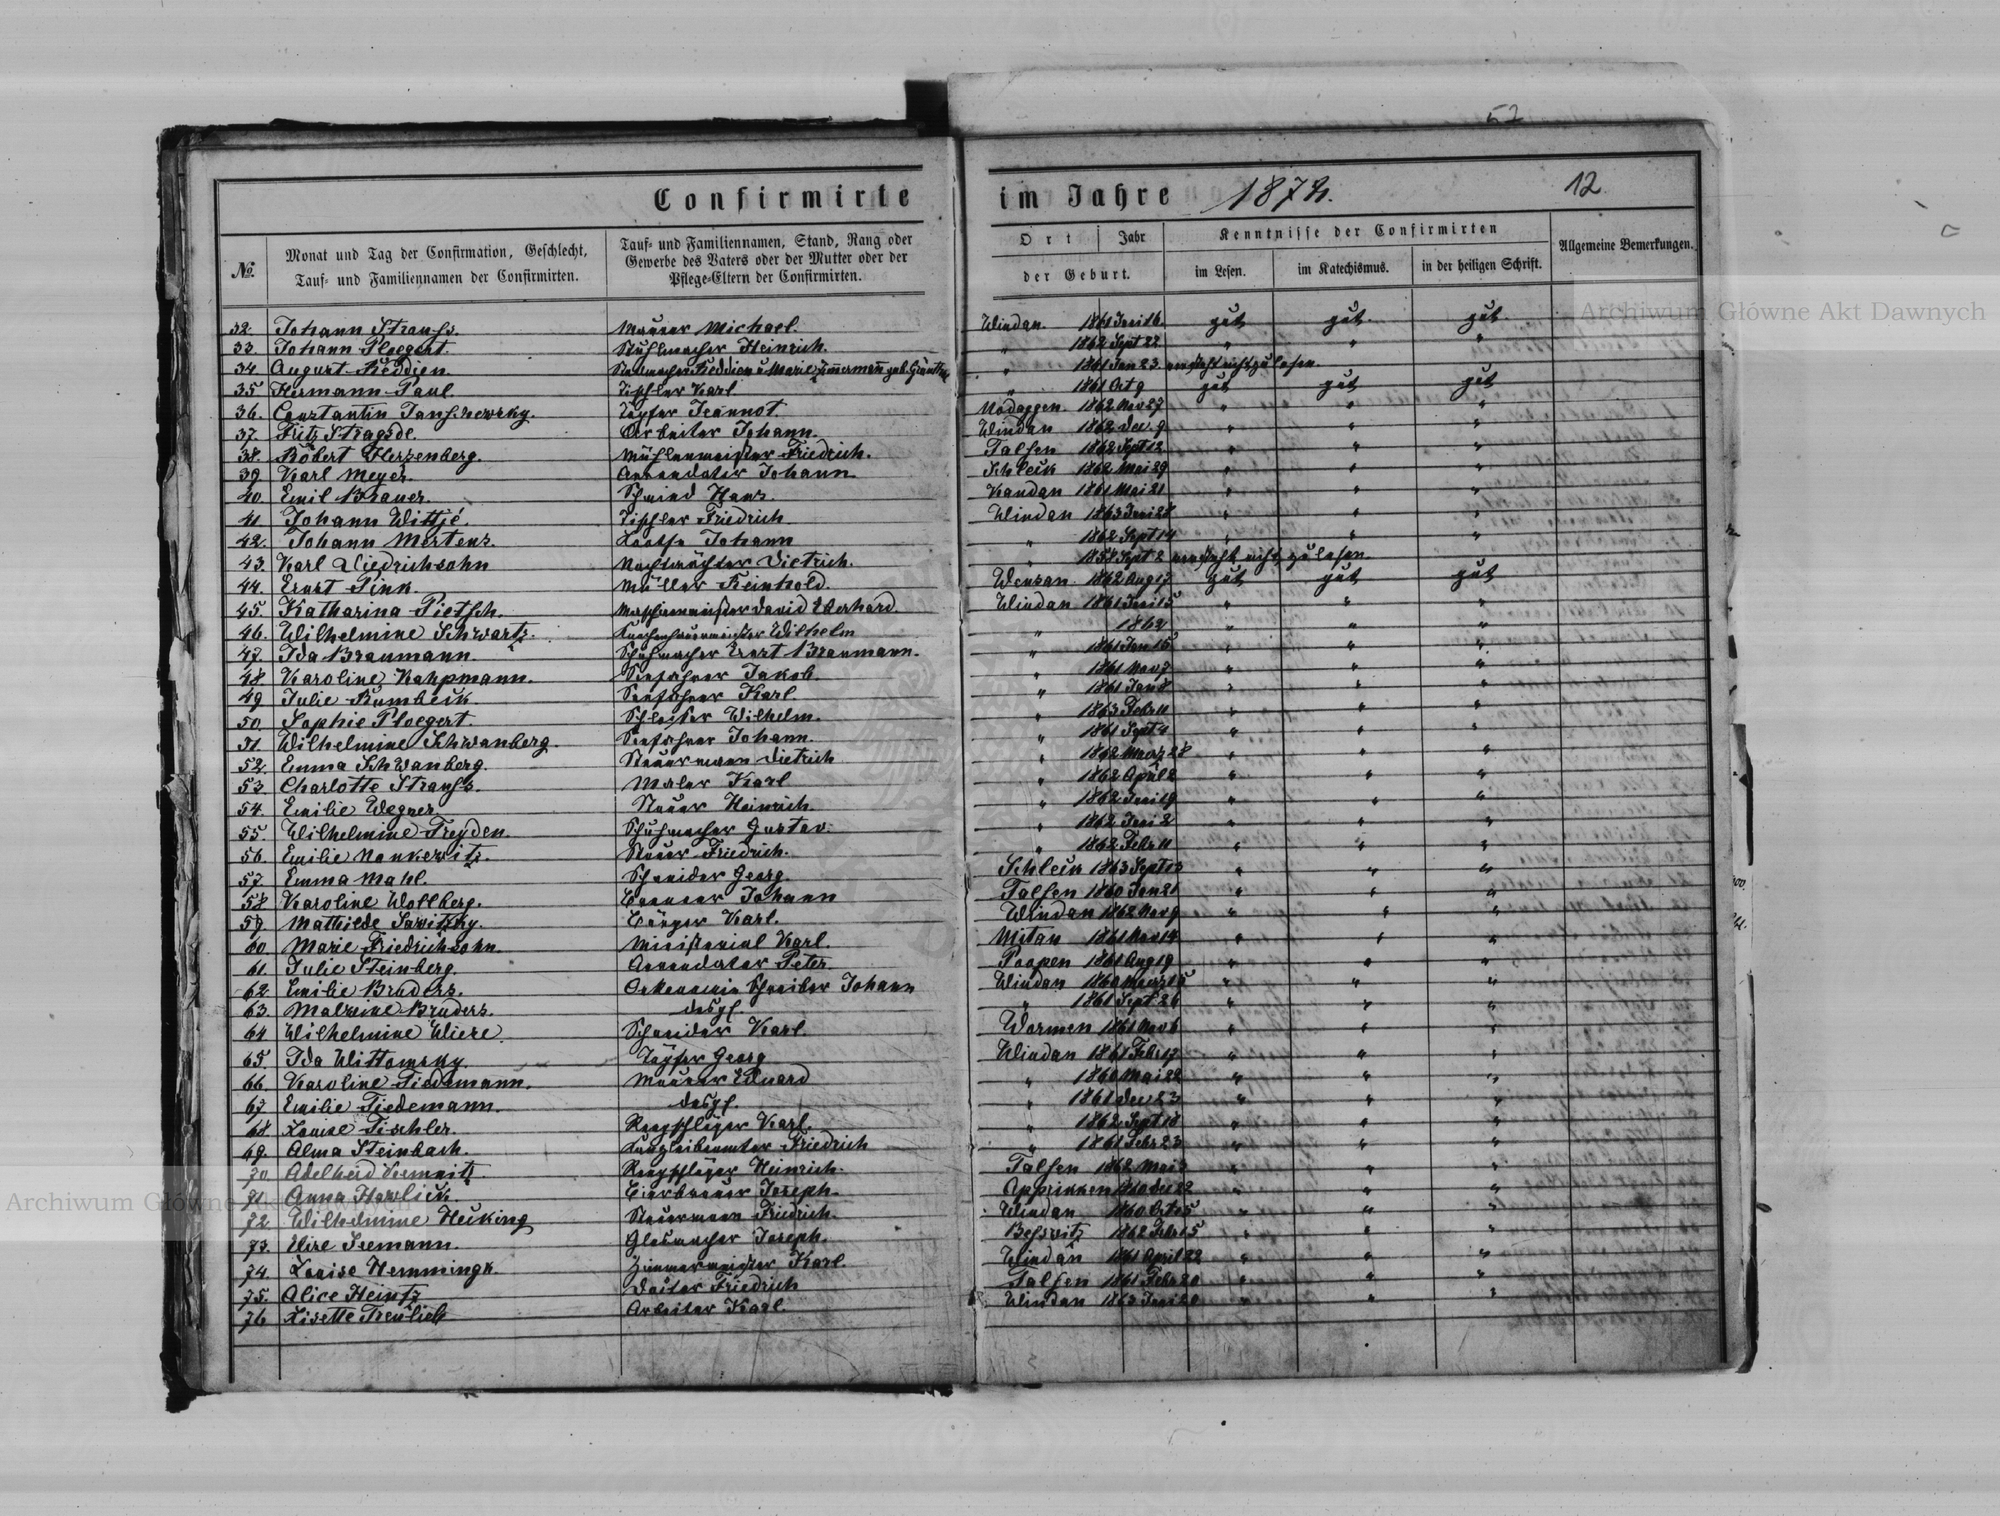 52
Confirmirte im Jahre 1878. 12
No. Monat und Tag der Confirmation, Geschlecht, Tauf- und Familiennamen der Confirmirten. Tauf- und Familiennamen, Stand, Rang oder Gewerbe des Vaters oder der Mutter oder der Pflege-Eltern der Confirmirten. Ort Jahr der Geburt. Kenntnisse der Confirmirten im Lesen. im Katechismus. in der heiligen Schrift. Allgemeine Bemerkungen.
32. Johann Strauss. Maurer Michael. Windau. 1861 Juni 16. gut gut. gut.
33. Johann Ploegert. Stuhlmacher Heinrich. " 1862 Sept 22 " " "
34. August Reddien. " 1861 Jan 23 versteht nicht zu lesen.
35 Hermann Paul. Tischler Karl " 1861 Oct 9 gut gut gut
36. Constantin Janschewsky. Töpfer Jeannot. 1862 Nov 27 " " "
37. Fritz Stragsde. Arbeiter Johann. Windau 1862 Dec. 9 " " "
38. Robert Herzenberg. Mühlenmeister Friedrich. Talsen 1862 Sept 12 " " "
39. Karl Meyer. Arrendator Johann. Schleck 1862 Mai 29 " " "
40. Emil Brauer. Schmied Hans. Kandau 1861 Mai 21 " " "
41. Johann Wittjé. Tischler Friedrich. Windau 1863 Juni 28 " " "
42. Johann Mertens. Lootse Johann " 1862 Sept 14 " " "
43. Karl Diedrichsohn Nachtwächter Dietrich. " 1858 Sept 2 versteht nicht zu lesen.
44. Ernst Pink. Müller Reinhold. Wensau 1862 Aug 17. gut gut gut
45. Katharina Pietsch. Maschinenmeister David Eberhard. Windau 1861 Juni 15 " " "
46. Wilhelmine Schwartz. Knochenhauermeister Wilhelm " 1862 " " "
47. Ida Braumann. Schuhmacher Ernst Braumann. " 1861 Jan 15 " " "
48 Karoline Kahpmann. Seefahrer Jakob. " 1861 Nov 7 " " "
49 Julie Rumbeck. Seefahrer Karl " 1861 Jan 8 " " "
50. Sophie Ploegert. Wilhelm. " 1863 Febr 11 " " "
51. Wilhelmine Schwanberg. Seefahrer Johann. " 1861 Sept 4 " " "
52. Emma Schwanberg. Steuermann Dietrich " 1862 Maerz 28 " " "
53. Charlotte Strauss. Maler Karl " 1862 April 2 " " "
54. Emilie Wegner. Heinrich. " 1862 Juni 19 " " "
55. Wilhelmine Freyden. Schuhmacher Gustav. " 1862 Juni 2 " " "
56. Emilie Nankewitz. Friedrich. " 1862 Febr 11 " " "
57. Emma Mahl. Schneider Georg. Schleck 1863 Sept 13 " " "
58 Karoline Wollberg. Johann Talsen 1860 Jan 21 " " "
59. Mathilde Sawitzky. Bürger Karl. Windau 1862 Nov 9 " " "
60. Marie Friedrichsohn. Ministerial Karl. Mitau 1861 Nov 14 " " "
61. Julie Steinberg. Arrendator Peter. Poopen 1861 Aug 19 " " "
62. Emilie Bruders. Oekonomie Schreiber Johann Windau 1860 Maerz 15 " " "
63. Malwine Bruders. desgl. " 1861 Sept. 26 " " "
64 Wilhelmine Wiere. Schneider Karl. Wormen 1861 Nov 6 " " "
65. Ida Wittomsky. Töpfer Georg Windau 1861 Febr 17 " " "
66. Karoline Tiedemann. Maurer Eduard " 1860 Mai 22 " " "
67. Emilie Tiedemann. desgl. " 1861 Dec 23 " " "
68. Louise Tischler. Reepschläger Karl. " 1862 Sept 18 " " "
69. Alma Steinbach. Kanzleibeamter Friedrich " 1861 Febr 23 " " "
70. Adelheid Reepschläger Heinrich. Talsen 1862 Mai 3 " " "
71. Anna Hawlick Bierbrauer Joseph. Apprikken 1860 Dec 22 " " "
72 Wilhelmine Heuking Steuermann Friedrich. Windau 1860 Oct 5 " " "
73. Elise Seemann. Joseph. 1862 Febr 15 " " "
74. Louise Hemmingk. Zimmermeister Karl. Windau 1861 April 22 " " "
75. Alice Heintz Doctor Friedrich Talsen 1861 Febr 20 " " "
76 Lisette Freulich Arbeiter Karl. Windau 1863 Juni 20 " " "
Archiwum Główne Akt Dawnych
Archiwum Główne Akt Dawnych